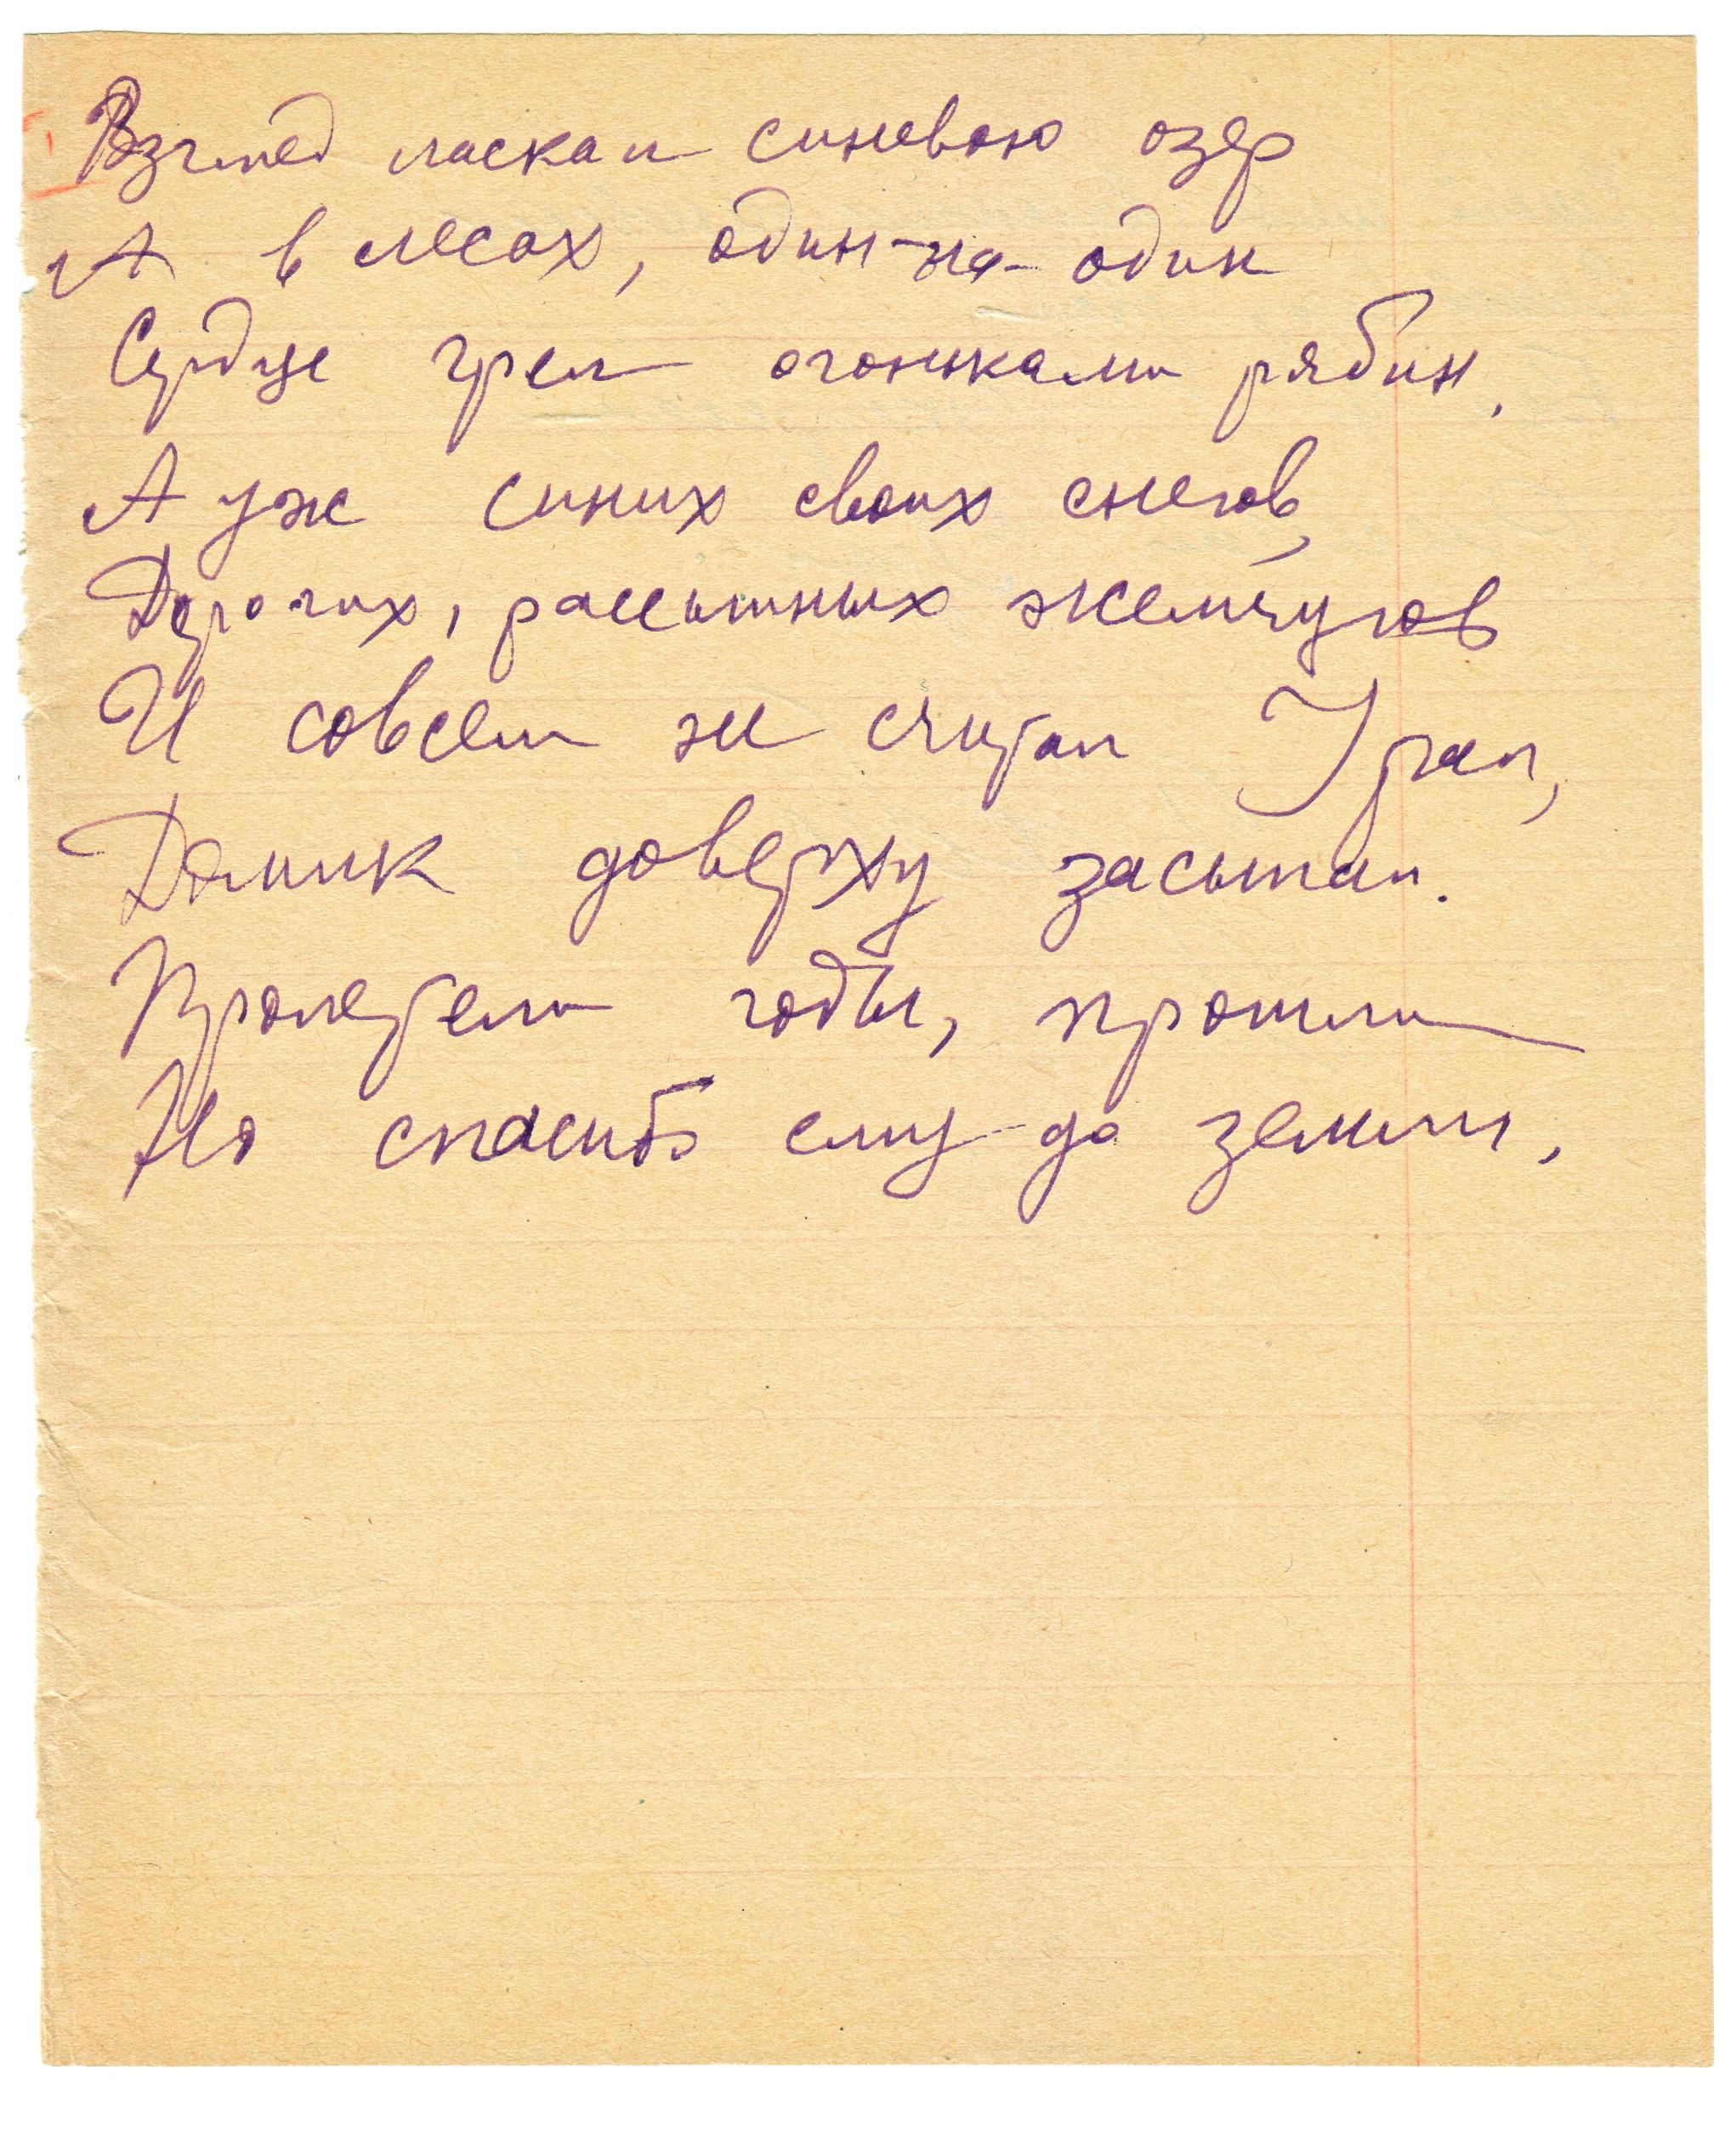 Взгляд ласкал синевою озер
А в лесах, один-на-один
Сердце грел огоньками рябин,
А уж синих своих снегов,
Дорогих, рассыпных жемчугов
И совсем не считал Урал,
Домик доверху засыпал.
Пролетели годы, прошли
Но спасибо ему до земли,